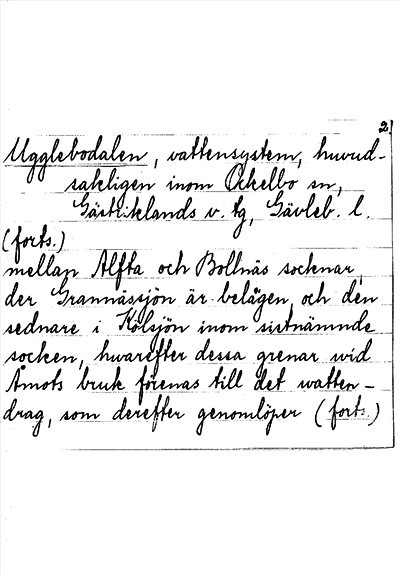 2)
Ugglebodalen, vattensystem, huvud-
sakligen inom Ockelbo sn,
Gästriklands v. tg, Gävleb. l.
(forts.)
mellan Alfta och Bollnäs socknar,
der Grannässjön är belägen, och den
sednare i Kölsjön inom sistnämnde
socken, hwarefter dessa grenar wid
Åmots bruk förenas till det watten-
drag, som derefter genomlöper (forts.)